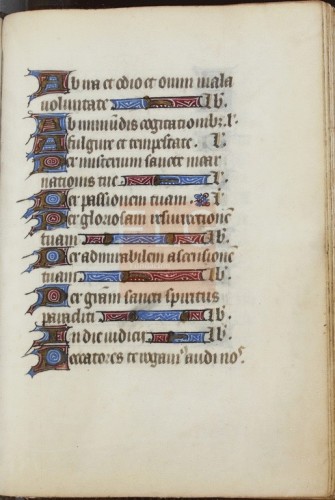 Ab ira et odio et omni mala
voluntate lb'.
Ab inmũdis cogitationibr. l'.
A fulgure et tempestate. l'.
Per misterium sancte incar
nationis tue l'.
Per passionem tuam. l'.
Per gloriosam resurrectionẽ
tuam lb'.
Per admirabilem ascensionẽ
tuam lb'.
Per grãm sancti spiritus
paracliti lb'.
In die iudicij lb'.
Peccatores te rogamꝰ audi noˢ.